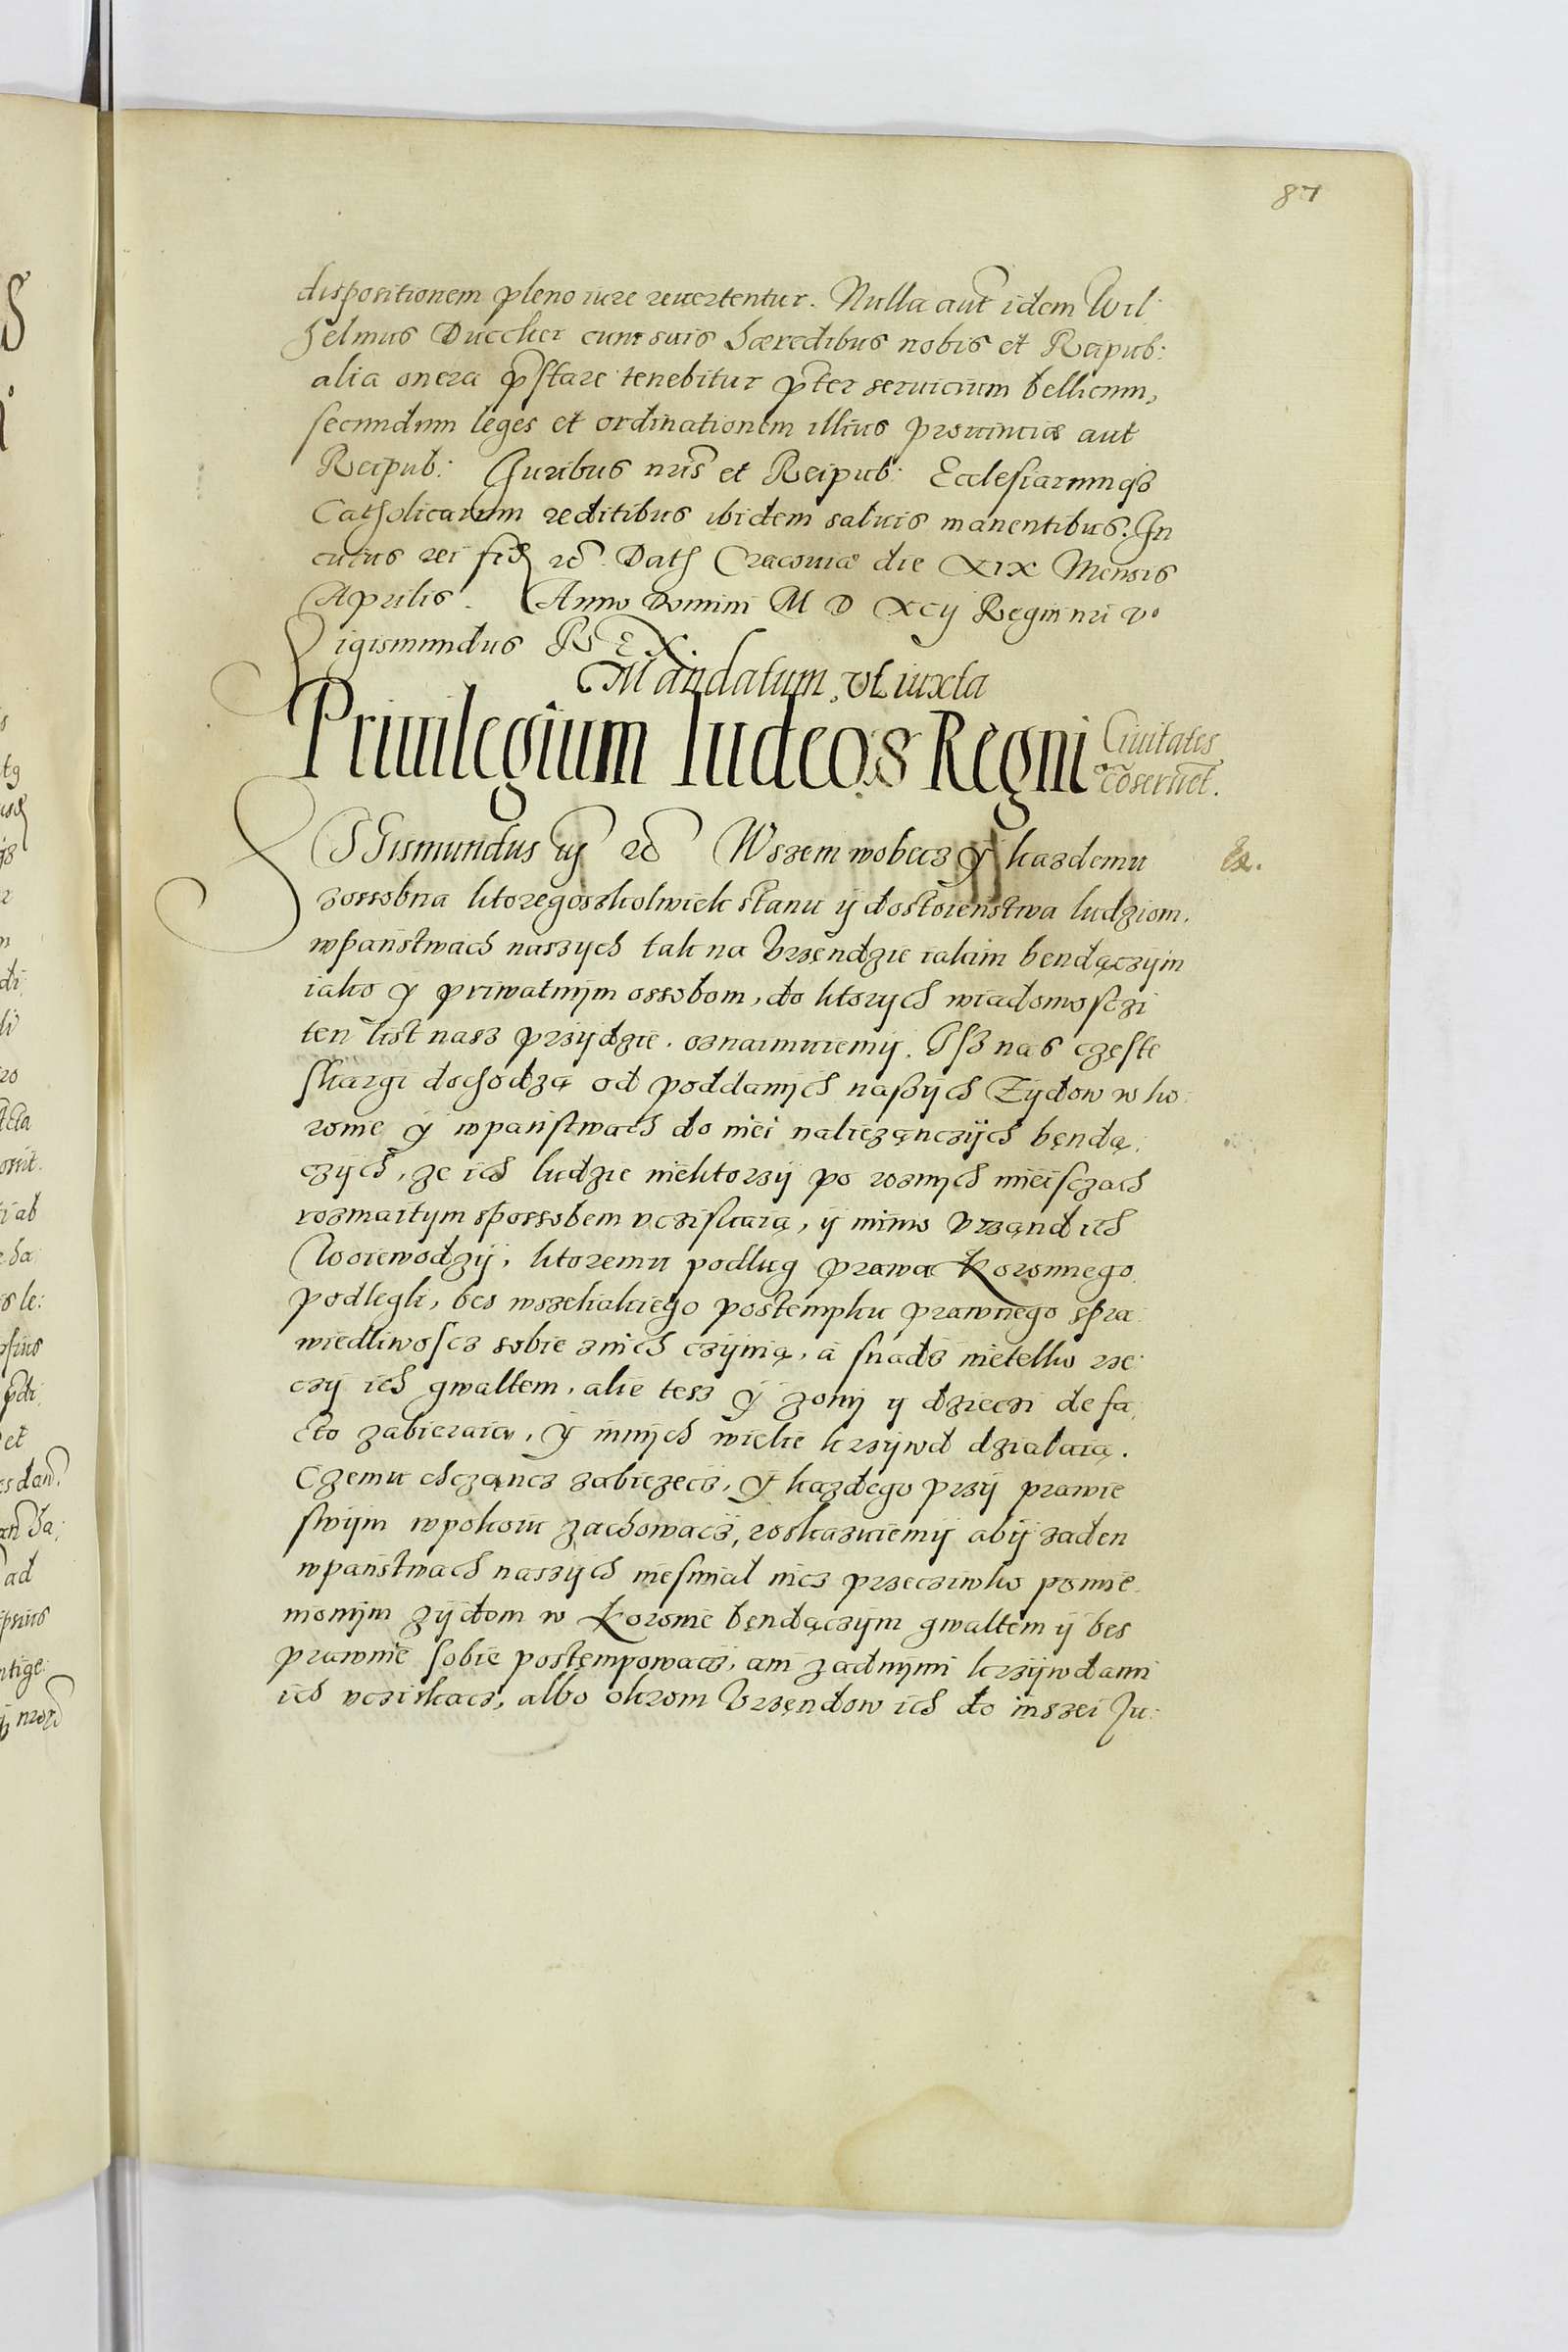 87
dispositionem pleno iure reuertentur. Nulla aut idem Wil:
helmus Duccher cum suis hæredibus nobis et Reipub:
alia onera pstare tenebitur pter seruicium bellicum,
secundum leges et ordinationem illius prouinciæ aut
Reipub: Juribus nris et Reipub: Ecclesiarumqз
Catholicarum reditibus ibidem saluis manentibus. In
cuius rei fidē etc. Dath Cracouiæ die XIX Mensis
Aprilis. Anno Domini M D XCij Regni nri v°
Sigismundus REX.
Mandatum, vt iuxta
Priuilegium Iudeos Regni Ciuitates
coseruēt.
SIGismundus iij etc Wszem wobecz y kazdemu
zossobna ktoregoszkolwiek stanu ij dostoienstwa ludziom,
wpaństwach naszych tak na Vrzendzie iakim bendączÿm
iako y priwatnÿm ossobom, do ktorych wiadomosczi
ten list nasz przÿdzie. oznaimuiemÿ. Isz nas częste
skargi dochodzą od poddanÿch naszÿch Zÿdow w ko:
ronie y wpaństwach do niei naliezączÿch będą:
czÿch, ze ich ludzie niektorzÿ po roznÿch mieisczach
rozmaitym spossobem vcziskaią, ÿ mimo vrzand ich
Woiewodzÿ, ktoremu podlug prawa Koronnego
podlegli, bes wszeliakiego postempku prawnego spra:
wiedliwoscz sobie znich czÿnią, a snadz nietelko rze:
czÿ ich gwaltem, alie tesz y zonÿ ÿ dzieczi de fa,
cto zabieraia, y innÿch wielie krzÿwd dzialaią.
Czemu chczącz zabiezecz, y kazdego przÿ prawie
swÿm wpokoiu zachowacz, roskazuiemÿ abÿ zaden
wpaństwach naszÿch niesmial nicz przecziwko pomie:
nionÿm zÿdom w Koronie będączÿm gwaltem ÿ bes
prawnie sobie postęmpowacz, ani zadnÿmi krzÿwdami
ich vcziskacz, albo okrom Vrzęndow ich do inszei Ju: